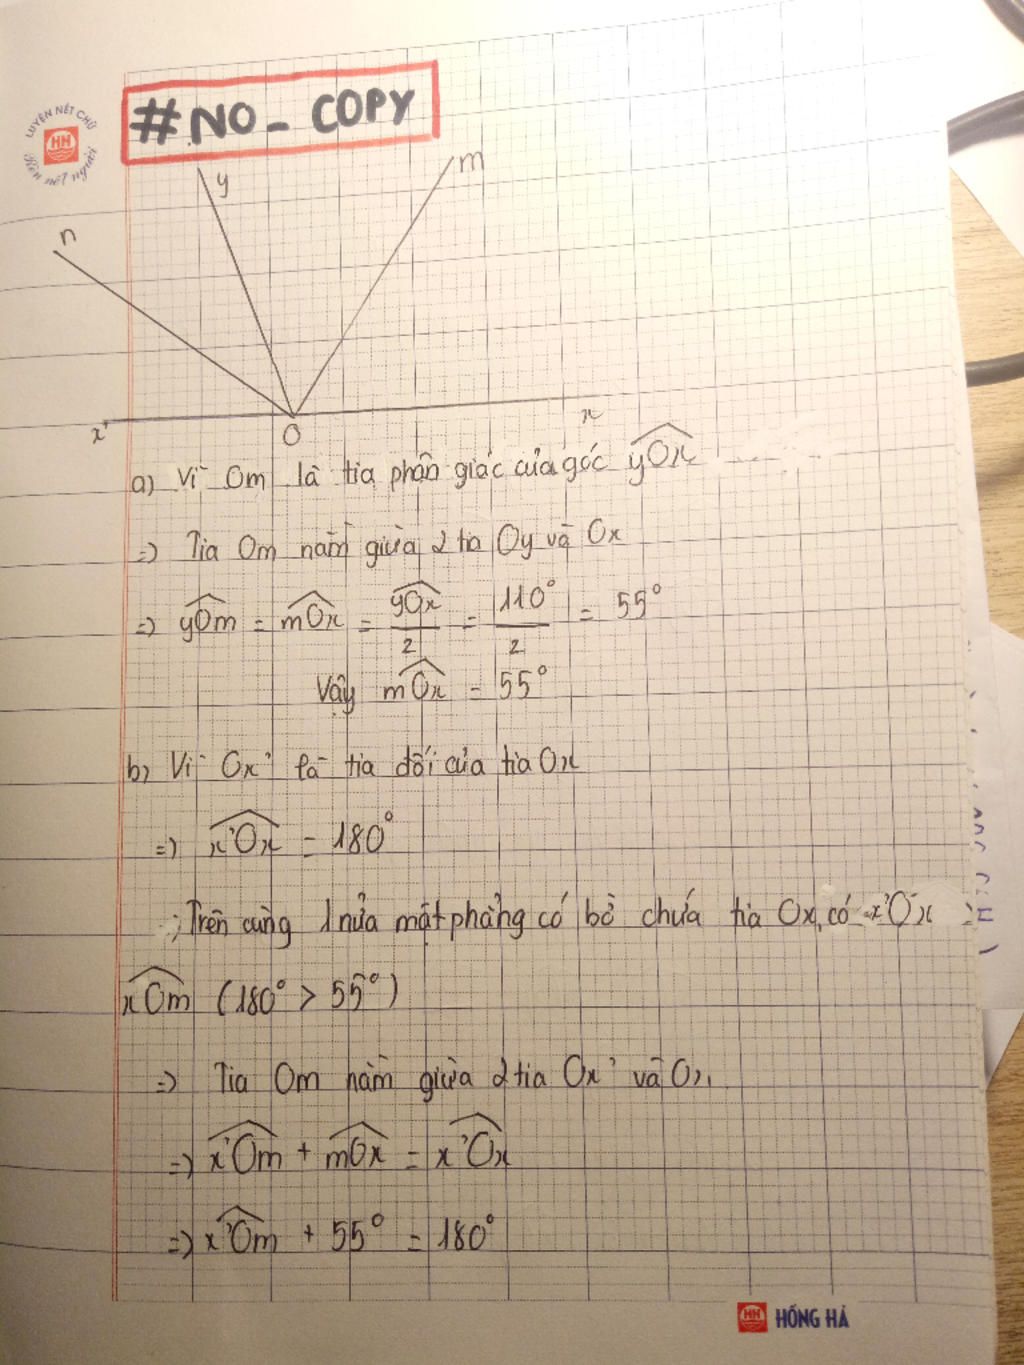 LUYỆN NÉT CHỮ
HH
Rèn nết người
#NO_COPY
y
m
n
x'
O
x
a) Vì Om là tia phân giác của góc yOx
=) Tia Om nằm giữa 2 tia Oy và Ox
=) yOm = mOx = yOx/2 = 110°/2 = 55°
Vậy mOx = 55°
b) Vì Ox' là tia đối của tia Ox
=) x'Ox = 180°
Trên cùng 1 nửa mặt phẳng có bờ chứa tia Ox, có x'Ox >
xOm (180° > 55°)
=) Tia Om nằm giữa 2 tia Ox' và Ox
=) x'Om + mOx = x'Ox
=) x'Om + 55° = 180°
HH HỒNG HÀ